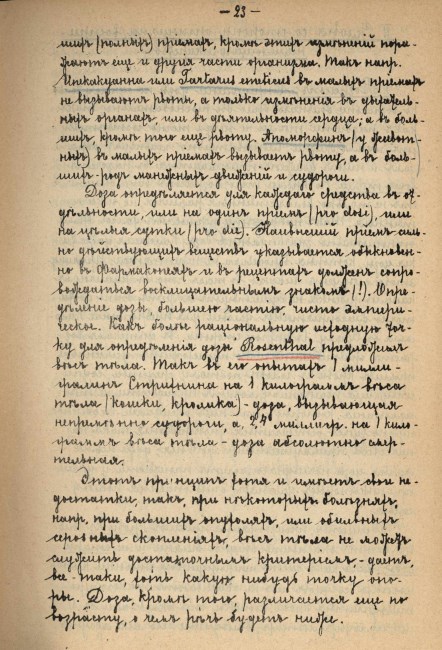 – 23 –
шихъ (полныхъ) пріемахъ, кромѣ этихъ измѣненій пора-
жаютъ еще и другія части организма. Такъ напр.
Ипекакуанна или Tartarus emeticus въ малыхъ пріемахъ
не вызываютъ рвоты, а только измѣненія въ дыхатель-
ныхъ органахъ, или въ дѣятельности сердца; а въ боль-
шихъ, кромѣ того еще рвоту. Апоморфинъ (у живот-
ныхъ) въ малыхъ пріемахъ вызываетъ рвоту, а въ боль-
шихъ – родъ манежныхъ движеній и судороги.
Доза опредѣляется для каждаго средства въ от-
дѣльности, или на одинъ пріемъ (pro dosi), или
на цѣлыя сутки (pro die). Наивысшій пріемъ силь-
но дѣйствующихъ веществъ указывается обыкновен-
но въ Фармакопеяхъ и въ рецептахъ долженъ сопро-
вождаться восклицательнымъ знакомъ (!). Опре-
дѣленіе дозы, большею частію, чисто эмпири-
ческое. Какъ болѣе раціональную исходную точ-
ку для опредѣленія дозы Rosenthal предложилъ
вѣсъ тѣла. Такъ въ его опытахъ 1 милли-
граммъ Стрихнина на 1 килограммъ вѣса
тѣла (кошки, кролика) – доза, вызывающая
непремѣнно судороги, а 2,4 миллигр. на 1 кило-
граммъ вѣса тѣла – доза абсолютно смер-
тельная.
Этотъ принципъ хотя и имѣетъ свои не-
достатки, такъ, при нѣкоторыхъ болѣзняхъ,
напр. при большихъ опухоляхъ, или обильныхъ
серозныхъ скопленіяхъ, вѣсъ тѣла не можетъ
служить достаточнымъ критеріемъ – даетъ,
все-таки, хоть какую нибудь точку опо-
ры. Доза, кромѣ того, различается еще по
возрасту, о чемъ рѣчь будетъ ниже.